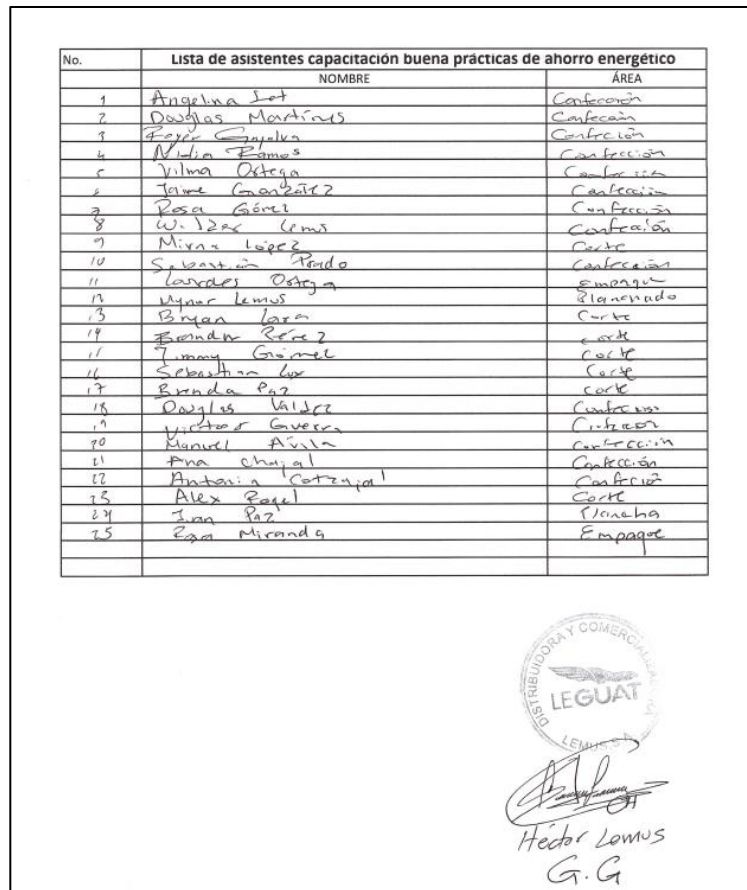 No. Lista de asistentes capacitación buena prácticas de ahorro energético
NOMBRE ÁREA
1 Angelina Confección
2 Douglas Martínes Confección
3 Confección
4 Nidia Ramos Confección
5 Vilma Ortega Confección
6 Jaime González Confección
7 Rosa Gómez Confección
8 Lemus Confección
9 Mirna López Corte
10 Sebastián Prado Confección
11 Lourdes Ortega Empaque
12 Mynor Lemus Planchado
13 Bryan Lara Corte
14 Pérez Corte
15 Jimmy Gómez Corte
16 Sebastian Lux Corte
17 Brenda Paz Corte
18 Douglas Valdez Confección
19 Guerra
20 Manuel Ávila Confección
21 Ana Chajal Confección
22 Antonia Confección
23 Alex Corte
24 Ivan Paz Plancha
25 Miranda Empaque
DISTRIBUIDORA Y
LEGUAT
LEMUS S.A
Héctor Lemus
G.G